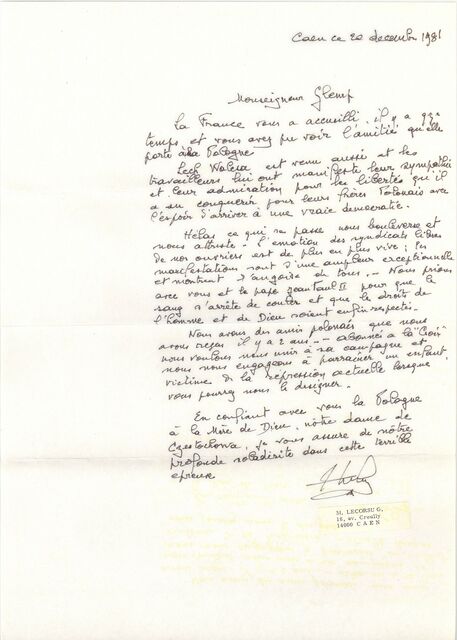 Caen ce 20 decembre 1981
Monseigneur Glemp
La France vous a accueilli il y a qq
temps et vous avez pu voir l'amitié qu'elle
porte à la Pologne
Lech Walesa est venu aussi et les
travailleurs lui ont manifesté leur sympathie
et leur admiration pour les libertés qu'il
a su conquérir pour leurs frères Polonais avec
l'espoir d'arriver à une vraie democratie.
Hélas ce qui se passe nous bouleverse et
nous attriste - l'emotion des syndicats libres
de nos ouvriers est de plus en plus vive ; les
manifestations sont d'une ampleur exceptionnelle
et montrent l'angoisse de tous. - Nous prions
avec vous et le pape Jean Paul II pour que le
sang s'arrête de couler et que le droit de
l'homme et de Dieu soient enfin respectés.
Nous avons des amis polonais que nous
avons reçus il y a 2 ans -- abonnés à la "Croix"
nous voulons nous unir à sa campagne et
nous nous engageons à parrainer un enfant
victime de la répression actuelle lorsque
vous pourrez nous le designer.
En confiant avec vous la Pologne
à la Mère de Dieu, notre dame de
Czestochowa, je vous assure de nôtre
profonde solidarité dans cette terrible
epreuve
M. LECORSU G.
16, av. Creully
14000 CAEN